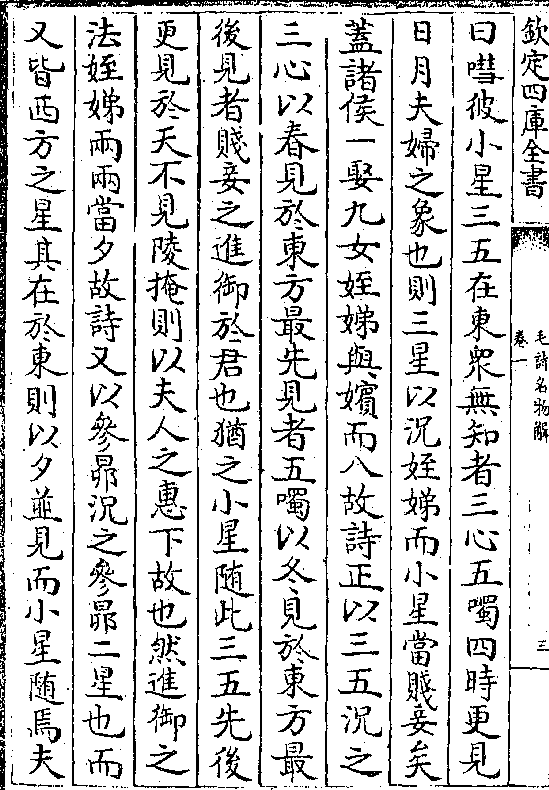 欽定四庫全書
毛詩名物解
卷一
三
曰嘒彼小星三五在東衆無知者三心五噣四時更見
日月夫婦之象也則三星以况姪娣而小星當賤妾矣
蓋諸侯一娶九女姪娣與嬪而八故詩正以三五况之
三心以春見於東方最先見者五噣以冬見於東方最
後見者賤妾之進御於君也猶之小星随此三五先後
更見於天不見陵掩則以夫人之惠下故也然進御之
法姪娣兩兩當夕故詩又以參昴况之參昴二星也而
又皆西方之星其在於東則以夕並見而小星随焉夫